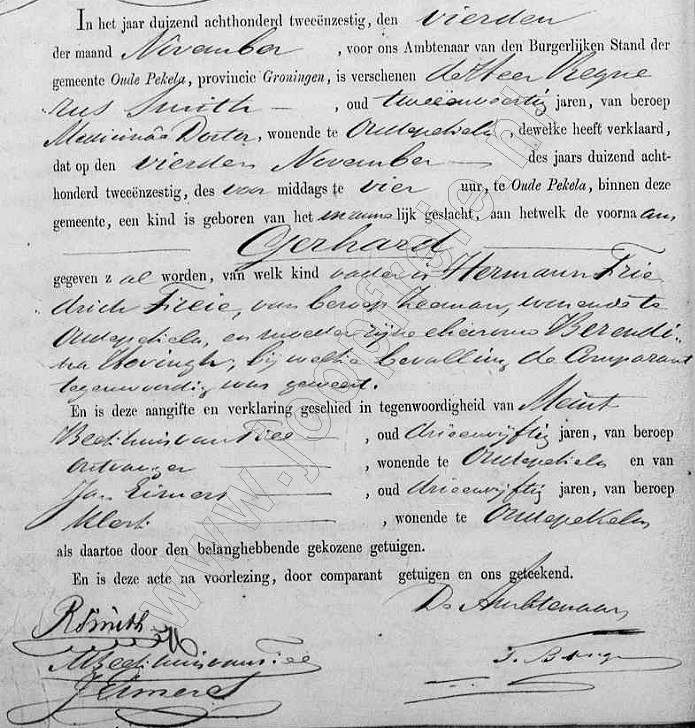 In het jaar duizend achthonderd tweeënzestig, den vierden
der maand November, voor ons Ambtenaar van den Burgerlijken Stand der
gemeente Oude Pekela, provincie Groningen, is verschenen de Heer Regne
rus Smith —, oud tweeënveertig jaren, van beroep
Medicinae Doctor, wonende te Oudepekela, dewelke heeft verklaard,
dat op den vierden November — des jaars duizend acht-
honderd tweeënzestig, des voor middags te vier uur, te Oude Pekela, binnen deze
gemeente, een kind is geboren van het mannelijk geslacht, aan hetwelk de voornaam,
— Gerhard —
gegeven zal worden, van welk kind vader is Hermann Frie
drich Freie, van beroep zeeman, wonende te
Oudepekela, en moeder zijne ehevrouw Berendi-
na Hovingh, bij welke bevalling de Comparant
tegenwoordig was geweest.
En is deze aangifte en verklaring geschied in tegenwoordigheid van Meint
Beethuis van Tiee —, oud drieenvijftig jaren, van beroep
ontvanger —, wonende te Oudepekela en van
Jan Eimers —, oud drieenvijftig jaren, van beroep
klerk —, wonende te Oudepekela
als daartoe door den belanghebbende gekozene getuigen.
En is deze acte na voorlezing, door comparant getuigen en ons geteekend.
De Ambtenaar
RSmith
MBeethuis van Tiee
JEimers
www.joopfreie.nl